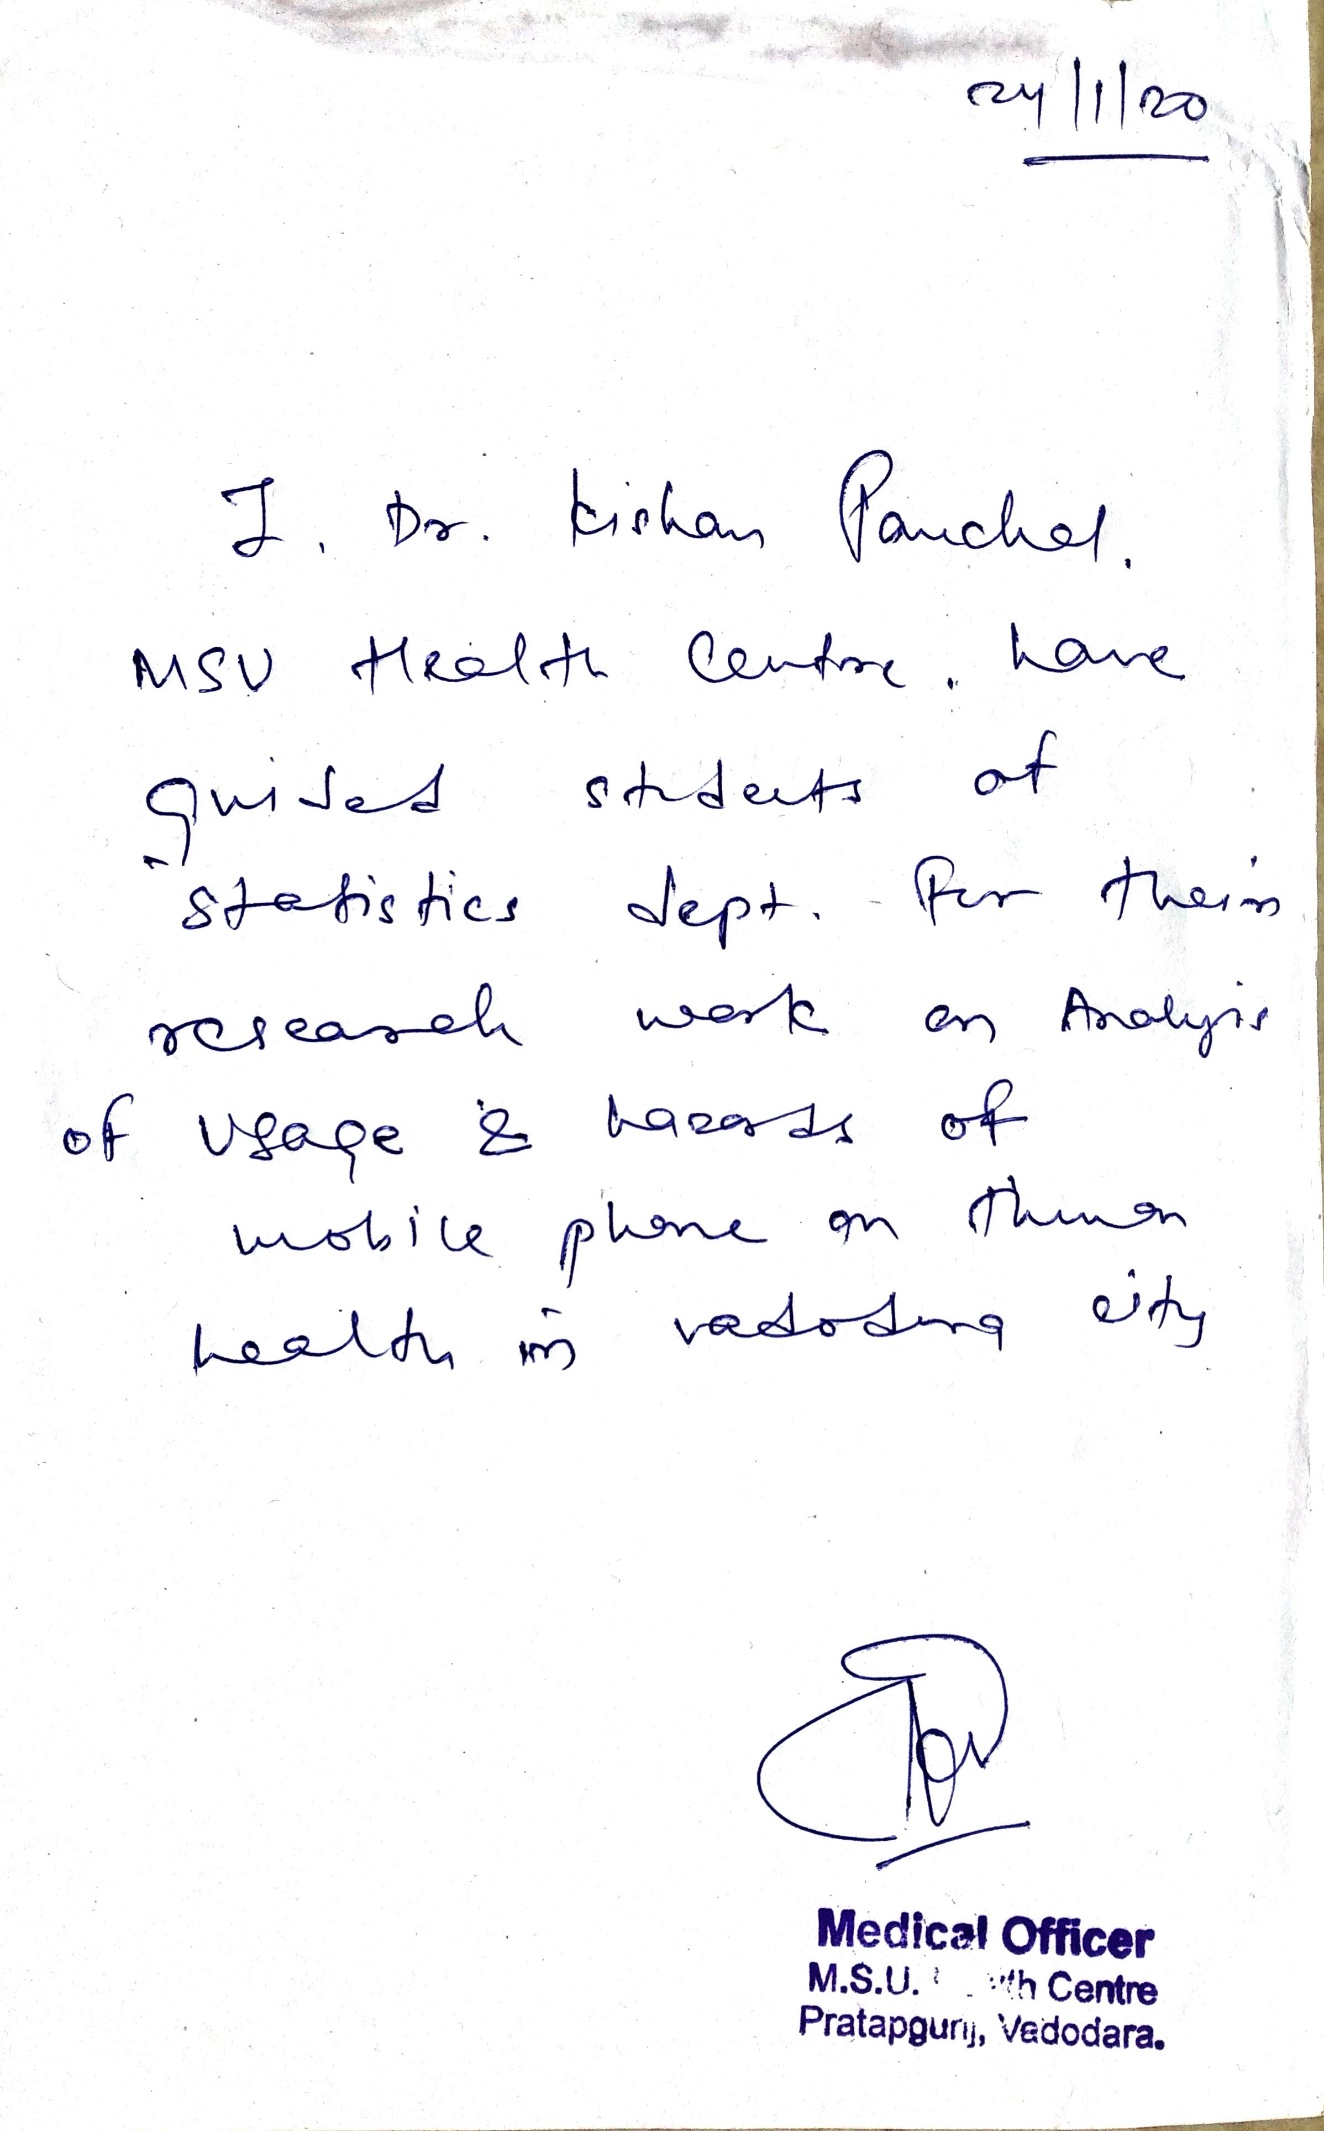 24/1/20
I, Dr. Kishan Panchal,
MSU Health Centre, have
guided students of
statistics dept. for their
research work on Analysis
of usage & hazards of
mobile phone on Human
health in vadodara city
Medical Officer
M.S.U. Centre
Pratapgunj, Vadodara.